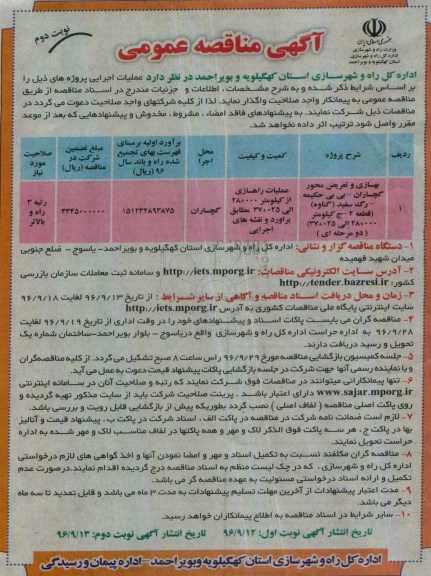 جمهوری اسلامی ایران
وزارت راه و شهرسازی
اداره کل راه و شهرسازی استان
کهگیلویه و بویراحمد
آگهی مناقصه عمومی
نوبت دوم
اداره کل راه و شهرسازی استان کهگیلویه و بویراحمد در نظر دارد عملیات اجرایی پروژه های ذیل را
بر اساس شرایط ذکر شده و به شرح مشخصات ، اطلاعات و جزئیات مندرج در اسناد مناقصه از طریق
مناقصه عمومی به پیمانکار واجد صلاحیت واگذار نماید. لذا از کلیه شرکتهای واجد صلاحیت دعوت می گردد در
مناقصات ذیل شرکت نمایند. به پیشنهادهای فاقد امضاء ، مشروط ، مخدوش و پیشنهادهایی که بعد از موعد
مقرر واصل شود ترتیب اثر داده نخواهد شد.
ردیف | شرح پروژه | کمیت و کیفیت | محل اجرا | برآورد اولیه برمبنای فهرست بهای تجمیع شده راه و باند سال ۹۶ (ریال) | مبلغ تضمین شرکت در مناقصه (ریال) | صلاحیت مورد نیاز
۱ | بهسازی و تعریض محور گچساران - بی بی حکیمه - رگ سفید (گناوه) (قطعه ۲-ج کیلومتر ۲۸+۰۰۰ الی ۳۷+۰۲۵) (دو مرحله ای) | عملیات راهسازی از کیلومتر ۲۸+۰۰۰ الی ۳۷+۰۲۵ مطابق برآورد و نقشه های اجرایی | گچساران | ۱۵۱۲۳۲۸۹۳۸۷۵ | ۴۳۲۵۰۰۰۰۰۰ | رتبه ۳ راه و بالاتر
۱- دستگاه مناقصه گزار و نشانی: اداره کل راه و شهرسازی استان کهگیلویه و بویراحمد- یاسوج - ضلع جنوبی
میدان شهید فهمیده
۲- آدرس سایت الکترونیکی مناقصات: http://iets.mporg.ir و سامانه ثبت معاملات سازمان بازرسی
کشور: http://tender.bazresi.ir
۳- زمان و محل دریافت اسناد مناقصه و آگاهی از سایر شرایط : از تاریخ ۹۶/۹/۱۳ لغایت ۹۶/۹/۱۸
سایت اینترنتی پایگاه ملی مناقصات کشوری به آدرس http://iets.mporg.ir
۴- مناقصه گران می بایست پاکات اسناد و پیشنهادهای خود را در وقت اداری از تاریخ ۹۶/۹/۱۹ لغایت
۹۶/۹/۲۸ به اداره حراست اداره کل راه و شهرسازی واقع در یاسوج - بلوار بویراحمد-ساختمان شماره یک
تحویل و رسید دریافت دارند.
۵- جلسه کمیسیون بازگشایی مناقصه مورخ ۹۶/۹/۲۹ راس ساعت ۸ صبح تشکیل می گردد. از کلیه مناقصه گران
و یا نماینده رسمی آنها جهت شرکت در جلسه بازگشایی پاکات پیشنهاد قیمت دعوت به عمل می آید.
۶- تنها پیمانکارانی میتوانند در مناقصات فوق شرکت نمایند که رتبه و صلاحیت آنان در سامانه اینترنتی
www.sajar.mporg.ir دارای اعتبار باشد . پرینت صلاحیت شرکت باید از سایت مذکور تهیه گردیده و
روی پاکت اصلی مناقصه (لفاف اصلی) نصب گردد بطوریکه پیش از بازگشایی قابل رویت و بررسی باشد.
۷- لازم است ضمانت نامه شرکت در مناقصه در پاکت الف ، اسناد شرکت در پاکت ب ، پیشنهاد قیمت و آنالیز
بها در پاکت ج ، هر سه پاکت فوق الذکر لاک و مهر و همه پاکتها در لفاف مناسب لاک و مهر شده به اداره
حراست تحویل نمایند.
۸- مناقصه گران مکلفند نسبت به تکمیل اسناد و مهر و امضا نمودن آنها و اخذ گواهی های لازم درخواستی
اداره کل راه و شهرسازی ، که در چک لیست منظم به اسناد مناقصه درج گردیده اقدام نمایند.درصورت عدم
تکمیل و ارائه اسناد درخواستی مسئولیت به عهده مناقصه گر می باشد.
۹- مدت اعتبار پیشنهادات از آخرین مهلت تسلیم پیشنهادات به مدت ۳ ماه می باشد و قابل تمدید تا سه ماه
دیگر می باشد.
۱۰- سایر شرایط در اسناد مناقصه به اطلاع پیمانکاران خواهد رسید.
تاریخ انتشار آگهی نوبت اول: ۹۶/۹/۱۲ تاریخ انتشار آگهی نوبت دوم: ۹۶/۹/۱۳
اداره کل راه و شهرسازی استان کهگیلویه و بویراحمد-اداره پیمان و رسیدگی